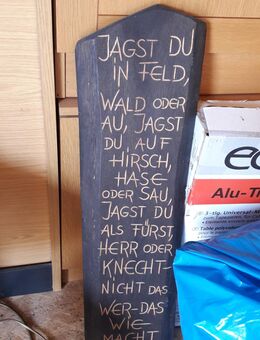 JAGST DU
IN FELD,
WALD ODER
AU, JAGST
DU, AUF
HIRSCH,
HASE
ODER SAU,
JAGST DU
ALS FÜRST,
HERR ODER
KNECHT-
NICHT DAS
WER-DAS
WIE
MACHT
Alu-T
3-tlg. Universal-M